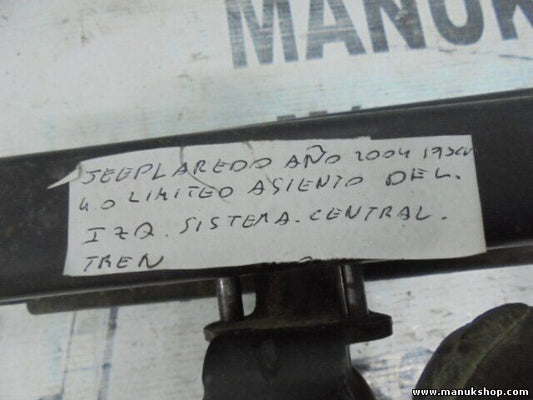 MANUK
JEEP LAREDO AÑO 2004 19
4.0 LIMITED ASIENTO DEL.
IZQ. SISTEMA. CENTRAL.
TREN
www.manukshop.com